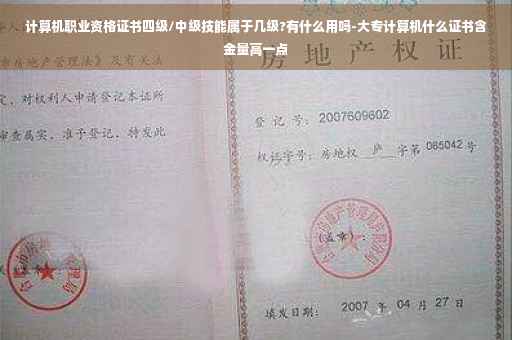 计算机职业资格证书四级/中级技能属于几级?有什么用吗-大专计算机什么证书含
金量高一点
房地产管理法》及有关法
定，对权利人申请登记本证所
审查属实，准予登记，特发此
房地产权证
登记号：2007609602
权证字号：房地权 庐 字第 085042 号
(盖章)：
填发日期： 2007 年 04 月 27 日